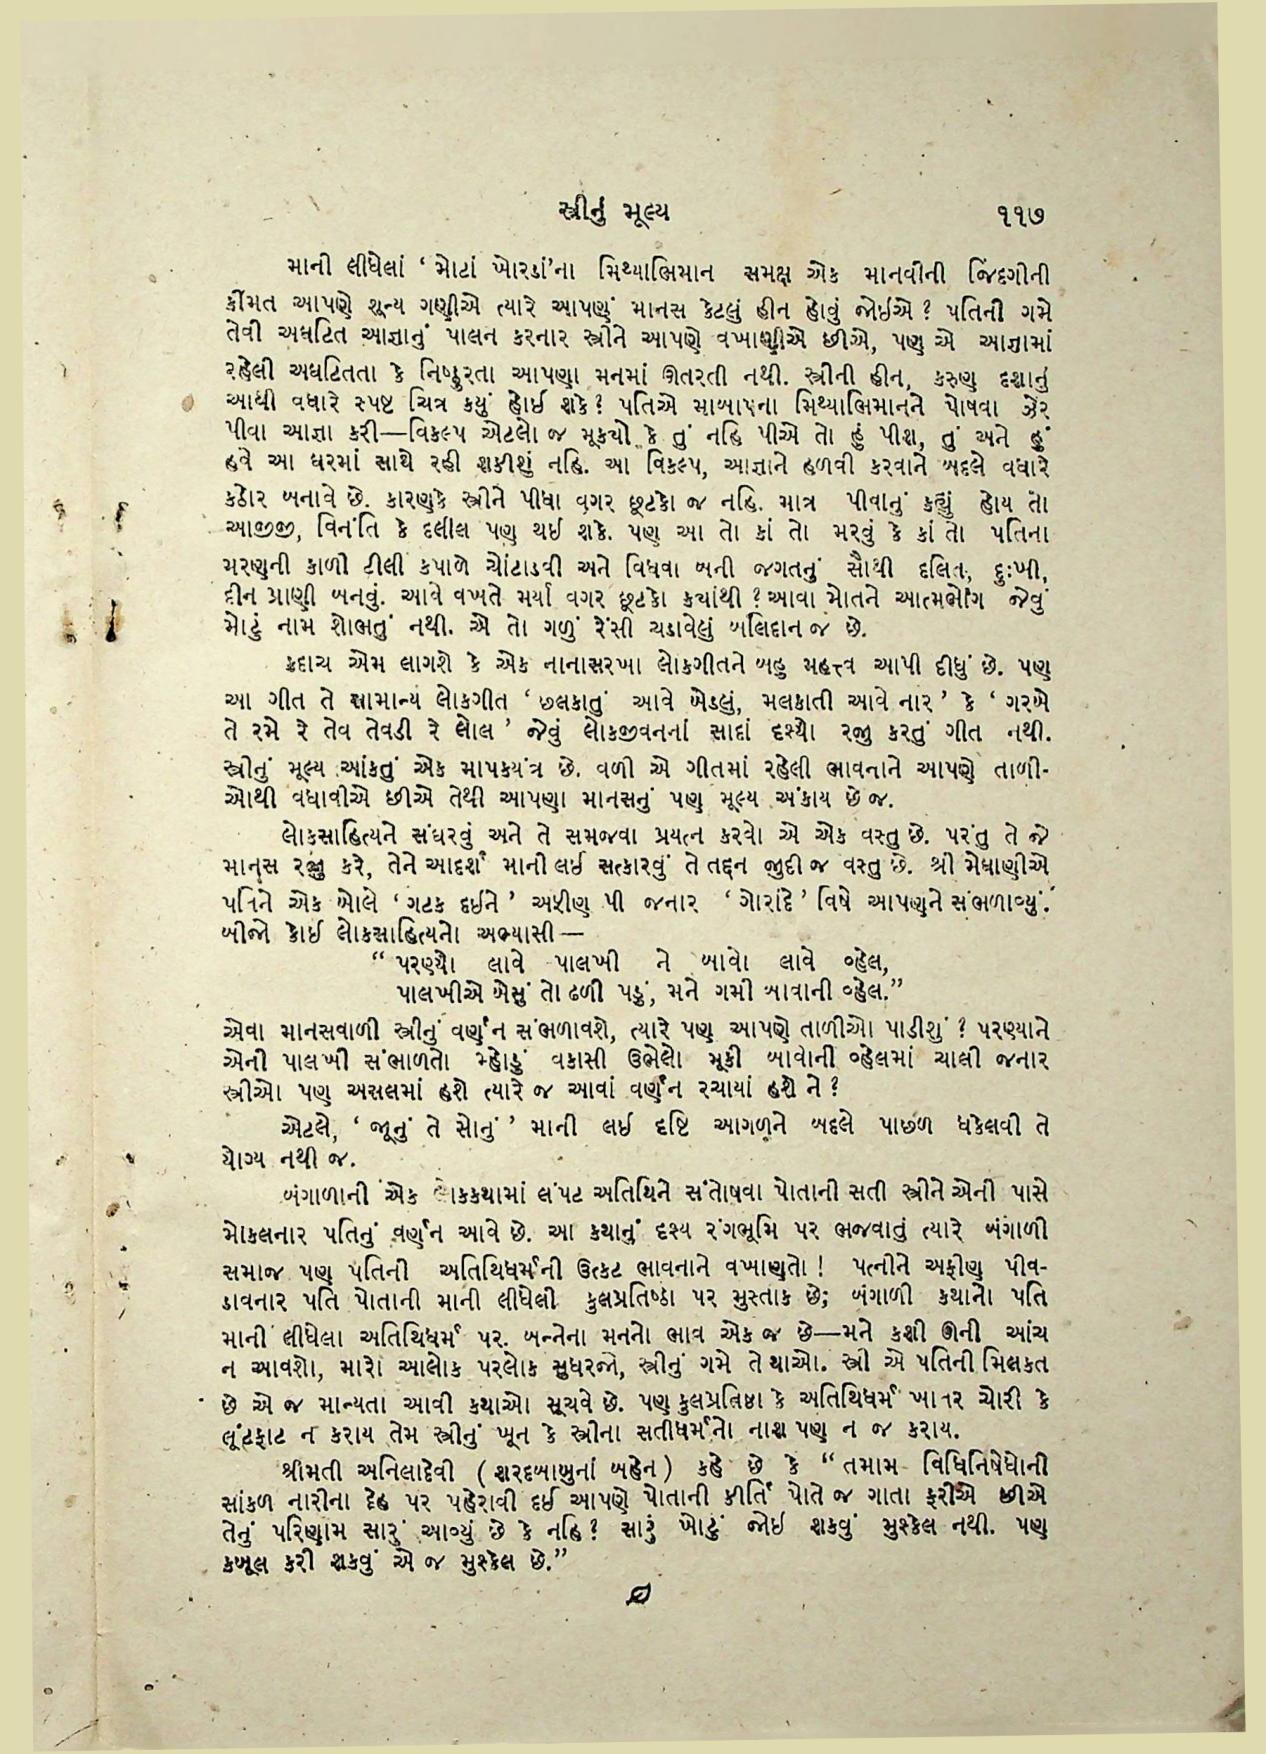 સ્ત્રીનું મૂલ્ય ૧૧૭
માની લીધેલાં ‘ મોટાં ખોરડાં’ના મિથ્યાભિમાન સમક્ષ એક માનવીની જિંદગીની
કીંમત આપણે શૂન્ય ગણીએ ત્યારે આપણું માનસ કેટલું હીન હોવું જોઇએ ? પતિની ગમે
તેવી અઘટિત આજ્ઞાનું પાલન કરનાર સ્ત્રીને આપણે વખાણીએ છીએ, પણ એ આજ્ઞામાં
રહેલી અઘટિતતા કે નિષ્ઠુરતા આપણા મનમાં ઊતરતી નથી. સ્ત્રીની હીન, કરુણ દશાનું
આથી વધારે સ્પષ્ટ ચિત્ર કયું હોઈ શકે ? પતિએ માબાપના મિથ્યાભિમાનને પોષવા ઝેર
પીવા આજ્ઞા કરી—વિકલ્પ એટલો જ મૂક્યો કે તું નહિ પીએ તો હું પીશ, તું અને હું
હવે આ ઘરમાં સાથે રહી શકીશું નહિ. આ વિકલ્પ, આજ્ઞાને હળવી કરવાને બદલે વધારે
કઠોર બનાવે છે. કારણકે સ્ત્રીને પીધા વગર છૂટકો જ નહિ. માત્ર પીવાનું કહ્યું હોય તો
આજીજી, વિનંતિ કે દલીલ પણ થઇ શકે. પણ આ તો કાં તો મરવું કે કાં તો પતિના
મરણની કાળી ટીલી કપાળે ચોંટાડવી અને વિધવા બની જગતનું સૌથી દલિત, દુઃખી,
દીન પ્રાણી બનવું. આવે વખતે મર્યા વગર છૂટકો ક્યાંથી ? આવા મોતને આત્મભોગ જેવું
મોટું નામ શોભતું નથી. એ તો ગળું રેંસી ચડાવેલું બલિદાન જ છે.
કદાચ એમ લાગશે કે એક નાનાસરખા લોકગીતને બહુ મહત્ત્વ આપી દીધું છે. પણ
આ ગીત તે સામાન્ય લોકગીત ‘ છલકાતું આવે બેડલું, મલકાતી આવે નાર ’ કે ‘ ગરબે
તે રમે રે તેવ તેવડી રે લોલ ’ જેવું લોકજીવનનાં સાદાં દૃશ્યો રજુ કરતું ગીત નથી.
સ્ત્રીનું મૂલ્ય આંકતું એક માપકયંત્ર છે. વળી એ ગીતમાં રહેલી ભાવનાને આપણે તાળી-
ઓથી વધાવીએ છીએ તેથી આપણા માનસનું પણ મૂલ્ય અંકાય છે જ.
લોકસાહિત્યને સંઘરવું અને તે સમજવા પ્રયત્ન કરવો એ એક વસ્તુ છે. પરંતુ તે જે
માનસ રજુ કરે, તેને આદર્શ માની લઈ સત્કારવું તે તદ્દન જુદી જ વસ્તુ છે. શ્રી મેઘાણીએ
પતિને એક બોલે ‘ ગટક દઈને ’ અફીણ પી જનાર ‘ ગોરાંદે ’ વિષે આપણને સંભળાવ્યું.
બીજો કોઈ લોકસાહિત્યનો અભ્યાસી—
“ પરણ્યો લાવે પાલખી ને બાવો લાવે વ્હેલ,
પાલખીએ બેસું તો ઢળી પડું, મને ગમી બાવાની વ્હેલ.”
એવા માનસવાળી સ્ત્રીનું વર્ણન સંભળાવશે, ત્યારે પણ આપણે તાળીઓ પાડીશું ? પરણ્યાને
એની પાલખી સંભાળતો મ્હોડું વકાસી ઉભેલો મૂકી બાવાની વ્હેલમાં ચાલી જનાર
સ્ત્રીઓ પણ અસલમાં હશે ત્યારે જ આવાં વર્ણન રચાયાં હશે ને ?
એટલે, ‘ જૂનું તે સોનું ’ માની લઈ દૃષ્ટિ આગળને બદલે પાછળ ધકેલવી તે
યોગ્ય નથી જ.
બંગાળાની એક લોકકથામાં લંપટ અતિથિને સંતોષવા પોતાની સતી સ્ત્રીને એની પાસે
મોકલનાર પતિનું વર્ણન આવે છે. આ કથાનું દૃશ્ય રંગભૂમિ પર ભજવાતું ત્યારે બંગાળી
સમાજ પણ પતિની અતિથિધર્મની ઉત્કટ ભાવનાને વખાણતો ! પત્નીને અફીણ પીવ-
ડાવનાર પતિ પોતાની માની લીધેલી કુલપ્રતિષ્ઠા પર મુસ્તાક છે; બંગાળી કથાનો પતિ
માની લીધેલા અતિથિધર્મ પર. બન્નેના મનનો ભાવ એક જ છે—મને કશી ઊની આંચ
ન આવશો, મારો આલોક પરલોક સુધરજો, સ્ત્રીનું ગમે તે થાઓ. સ્ત્રી એ પતિની મિલકત
છે એ જ માન્યતા આવી કથાઓ સૂચવે છે. પણ કુલપ્રતિષ્ઠા કે અતિથિધર્મ ખાતર ચોરી કે
લૂંટફાટ ન કરાય તેમ સ્ત્રીનું ખૂન કે સ્ત્રીના સતીધર્મનો નાશ પણ ન જ કરાય.
શ્રીમતી અનિલાદેવી ( શરદબાબુનાં બહેન ) કહે છે કે “ તમામ વિધિનિષેધોની
સાંકળ નારીના દેહ પર પહેરાવી દઈ આપણે પોતાની કીર્તિ પોતે જ ગાતા ફરીએ છીએ
તેનું પરિણામ સારું આવ્યું છે કે નહિ ? સારું ખોટું જોઇ શકવું મુશ્કેલ નથી. પણ
કબૂલ કરી શકવું એ જ મુશ્કેલ છે.”